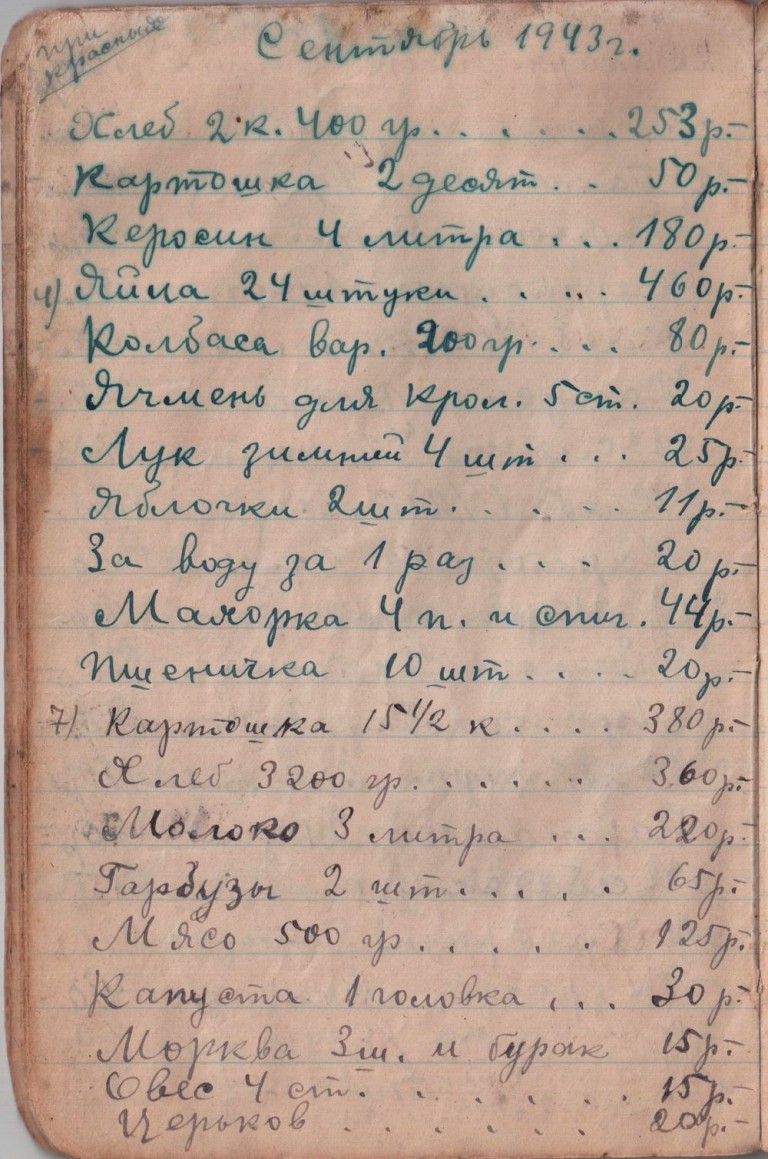 при
красных
Сентябрь 1943 г.
Хлеб 2 к. 400 гр. . . . . . . 253 р.-
Картошка 2 десят. . . 50 р.-
Керосин 4 литра . . . 180 р.-
4) Яйца 24 штуки . . . . . 460 р.-
Колбаса вар. 200 гр. . . . 80 р.-
Ячмень для крол. 5 ст. 20 р.-
Лук зимний 4 шт . . . 25 р.-
Яблочки 2 шт. . . . . 11 р.-
За воду за 1 раз . . . . 20 р.-
Махорка 4 п. и спич. 44 р.-
Пшеничка 10 шт . . . . 20 р.-
7) Картошка 15 1/2 к . . . . 380 р.-
Хлеб 3200 гр. . . . . . . 360 р.-
Молоко 3 литра . . . 220 р.-
Гарбузы 2 шт. . . . . 65 р.-
Мясо 500 гр. . . . . . 125 р.-
Капуста 1 головка . . . 30 р.-
Морква 3 ш. и бурак 15 р.-
Овес 4 ст. . . . . . . . 15 р.-
Церьков . . . . . . . 20 р.-